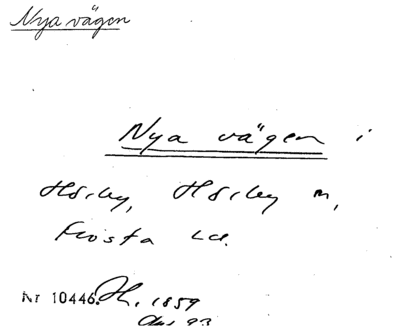 Nya vägen
Nya vägen i
Hörby, Hörby m,
Frosta hd.
Nr 10446. Hh. 1859